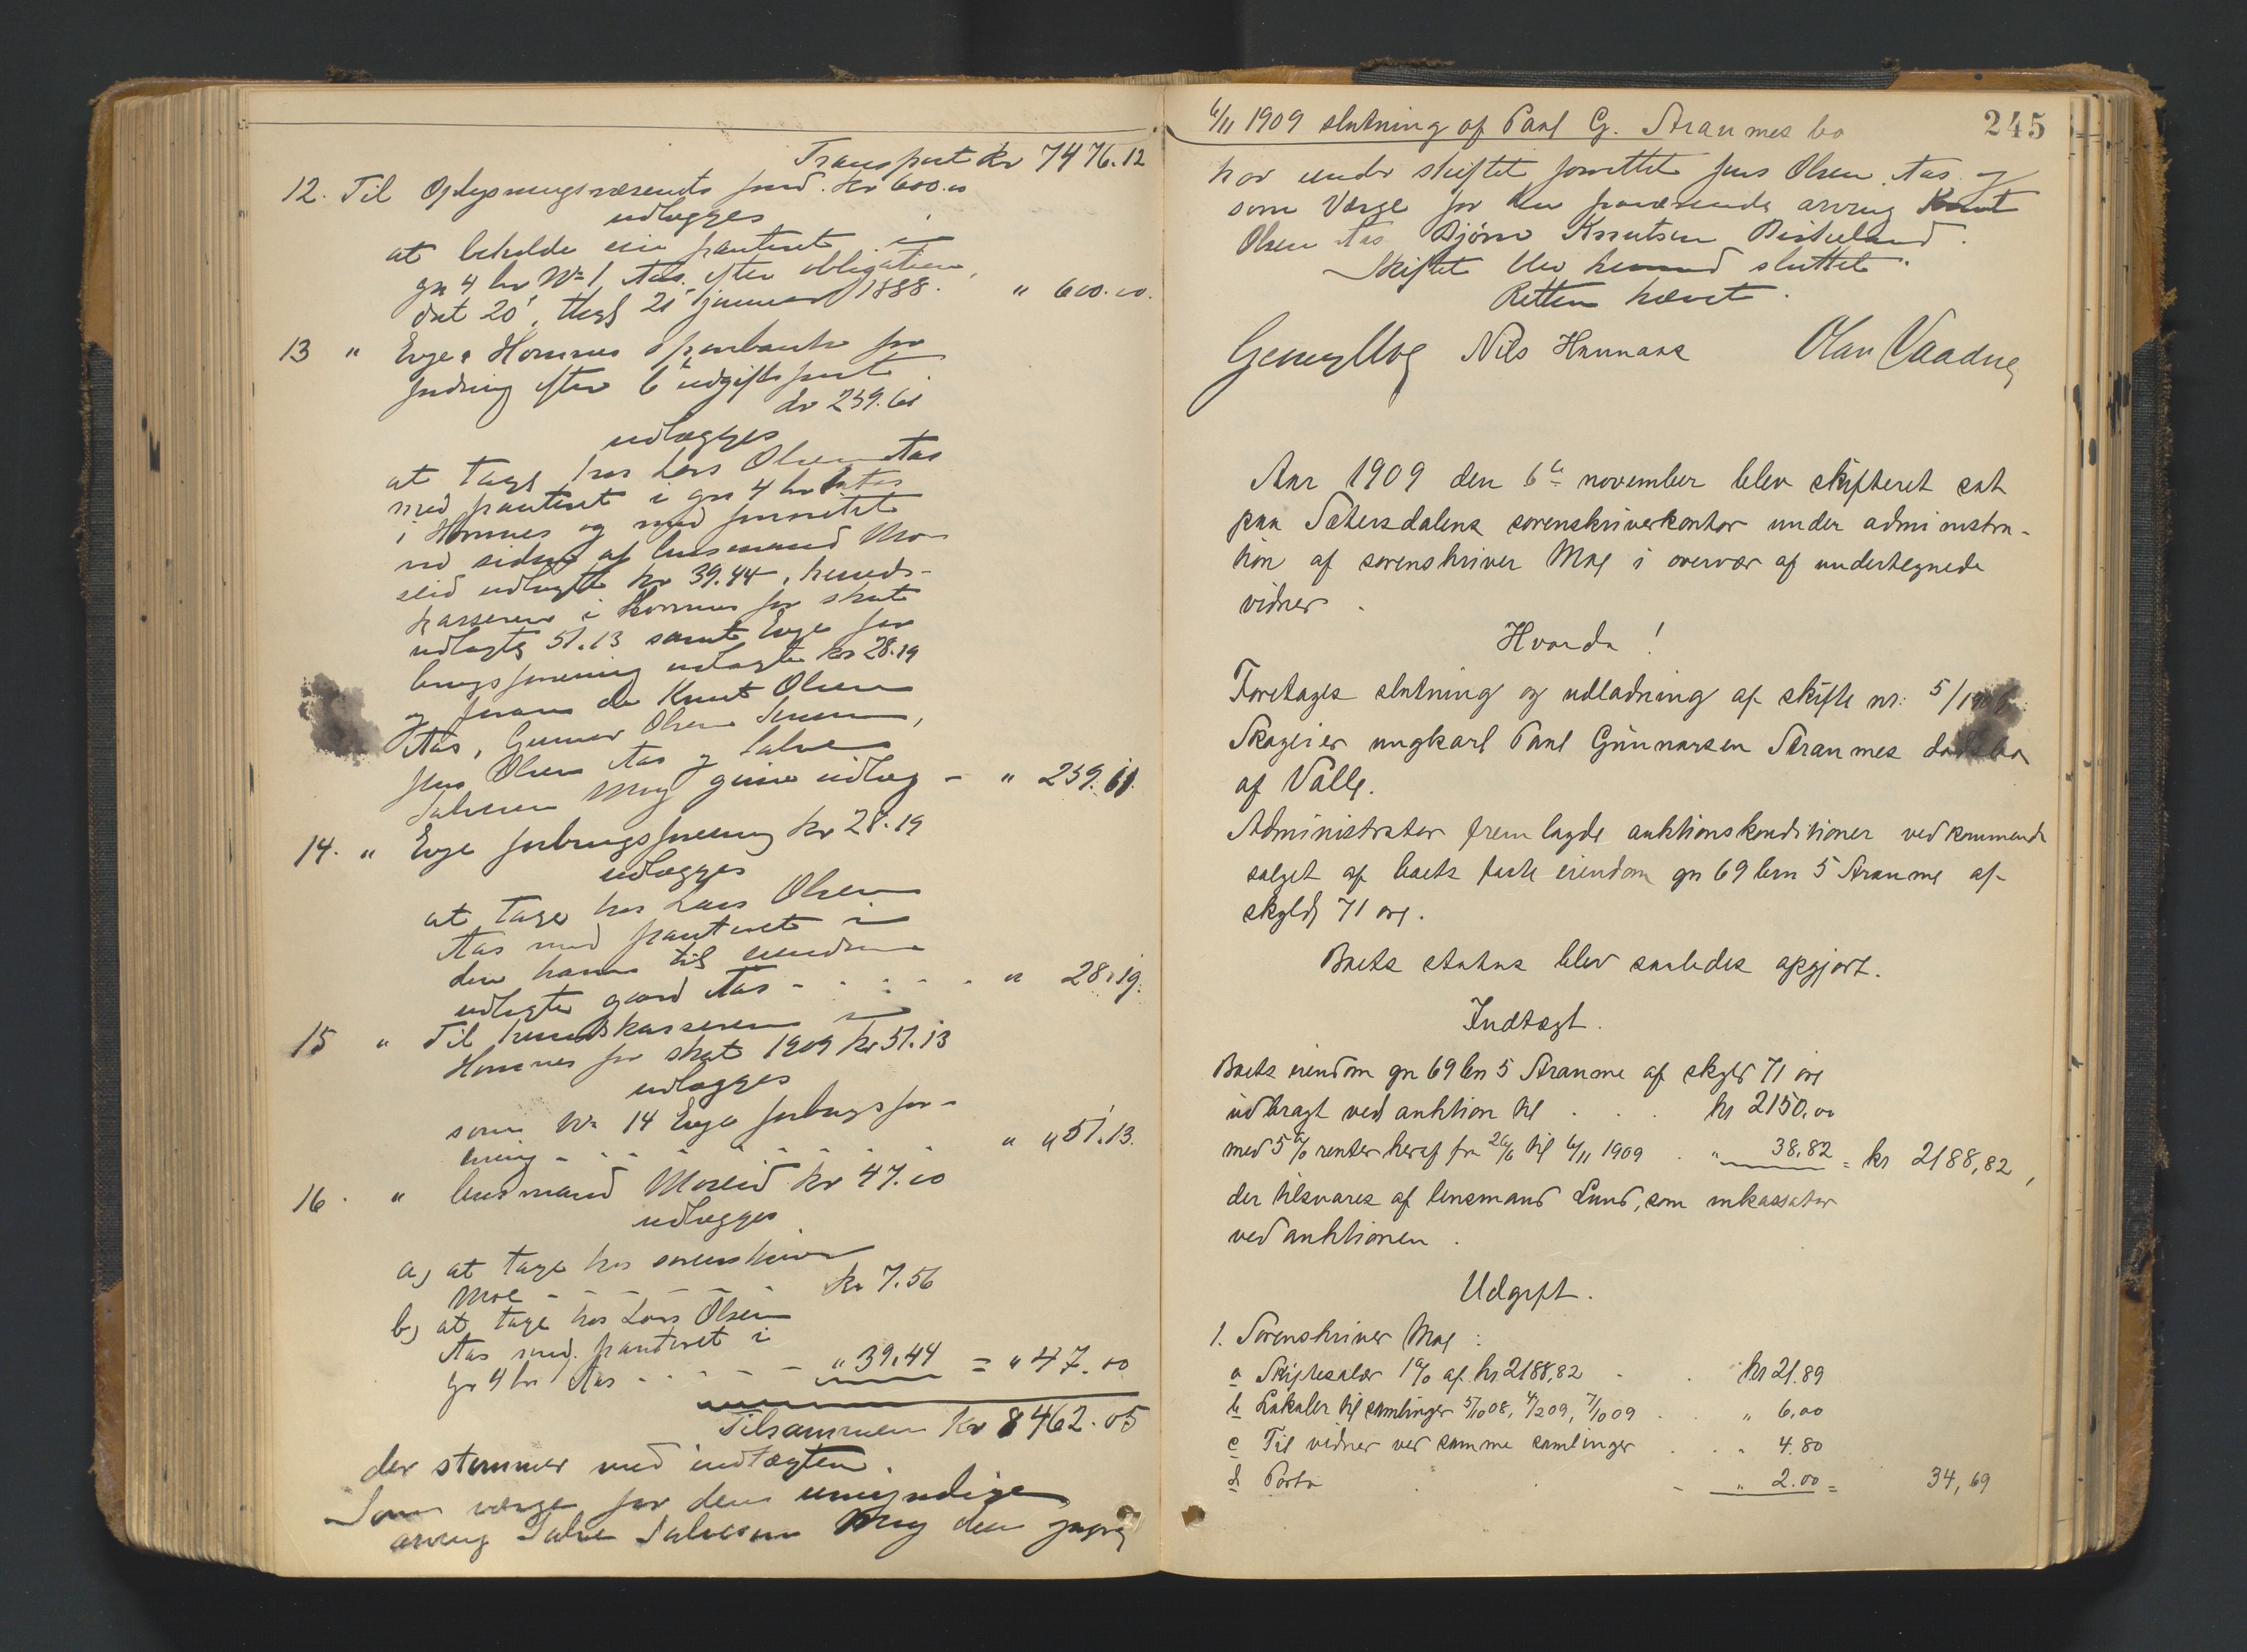 Transport kr 7476.12
12. Til Oplysningsvæsenets fond. kr 600.00
udlægges
at beholde sin panteret i
gn 4 bn No 1 Aas efter obligation,
dat 20', thgl 21' januar 1888. " 600.00.
13 " Evje & Hornnes sparebank for
fordring efter 6te udgiftspost
kr 259.61
udlægges
at tage hos Lars Olsen Aas
med panteret i gn 4 bn Aas
i Hornnes og med prioritet
ved siden af lensmand Mo-
seid udlagte kr 39.44, herreds-
kasseren i Hornnes for skat
udlagte 51.13 samt Evje for
brugsforening udlagte kr 28.19
og foran de Knut Olsen
Aas, Gunnar Olsen
Jens Olsen Aas og Salve
Salvesen Moy givne udlæg - " 259.61.
14. " Evje forbrugsforening kr 28.19
udlægges
at tage hos Lars Olsen
Aas med panteret i
den ham til eiendom
udlagte gaard Aas - - - - - " 28.19.
15 " Til herredskasseren i
Hornnes for skat 1909 kr 51.13
udlægges
som No 14 Evje forbrugsfor-
ening - - - - - - - " " 51.13.
16. " lensmand Moseid kr 47.00
udlægges
a, at tage hos sorenskriver
Moe - - - - - kr 7.56
b, at tage hos Lars Olsen
Aas med panteret i
gn 4 bn Aas - - - - - " 39.44 = " 47.00
Tilsammen kr 8462.05
der stemmer med indtægten.
Som værge for den umyndige
arving Salve Salvesen Moy den
6/11 1909 slutning af Paul G. Straumes bo 245
har under skiftet forrettet Jens Olsen Aas og
som Værge for den fraværende arving Knut
Olsen Aas Bjørn Knutsen Birkeland.
Skiftet blev hermed sluttet.
Retten hævet.
Georg Moe Nils Hannaas Olav Vaadne
Aar 1909 den 6te november blev skifteret sat
paa Sætersdalens sorenskriverkontor under administra-
tion af sorenskriver Moe i overvær af undertegnede
vidner.
Hvorda!
Foretages slutning og udlodning af skifte nr: 5/1906:
Skageier ungkarl Paul Gunnarsen Straumes dødsbo
af Valle.
Administrator fremlagde auktionskonditioner vedkommende
salget af boets faste eiendom gn 69 bn 5 Straume af
skyld 71 øre.
Boets status blev saaledes opgjort.
Indtægt.
Boets eiendom gn 69 bn 5 Straume af skyld 71 øre
udbragt ved auktion til . . . kr 2150,00
med 5 % renter heraf fra 26/6 til 6/11 1909 . " 38,82 = kr 2188,82,
der tilsvares af lensmand Lund, som inkassator
ved auktionen.
Udgift.
1. Sorenskriver Moe:
a Skiftesalær 1 % af kr 2188,82 . . kr 21.89
b Lokaler til samlinger 5/10 08, 4/2 09, 7/10 09 . . " 6,00
c Til vidner ved samme samlinger . . " 4.80
d Porto . . - " 2.00 = 34,69